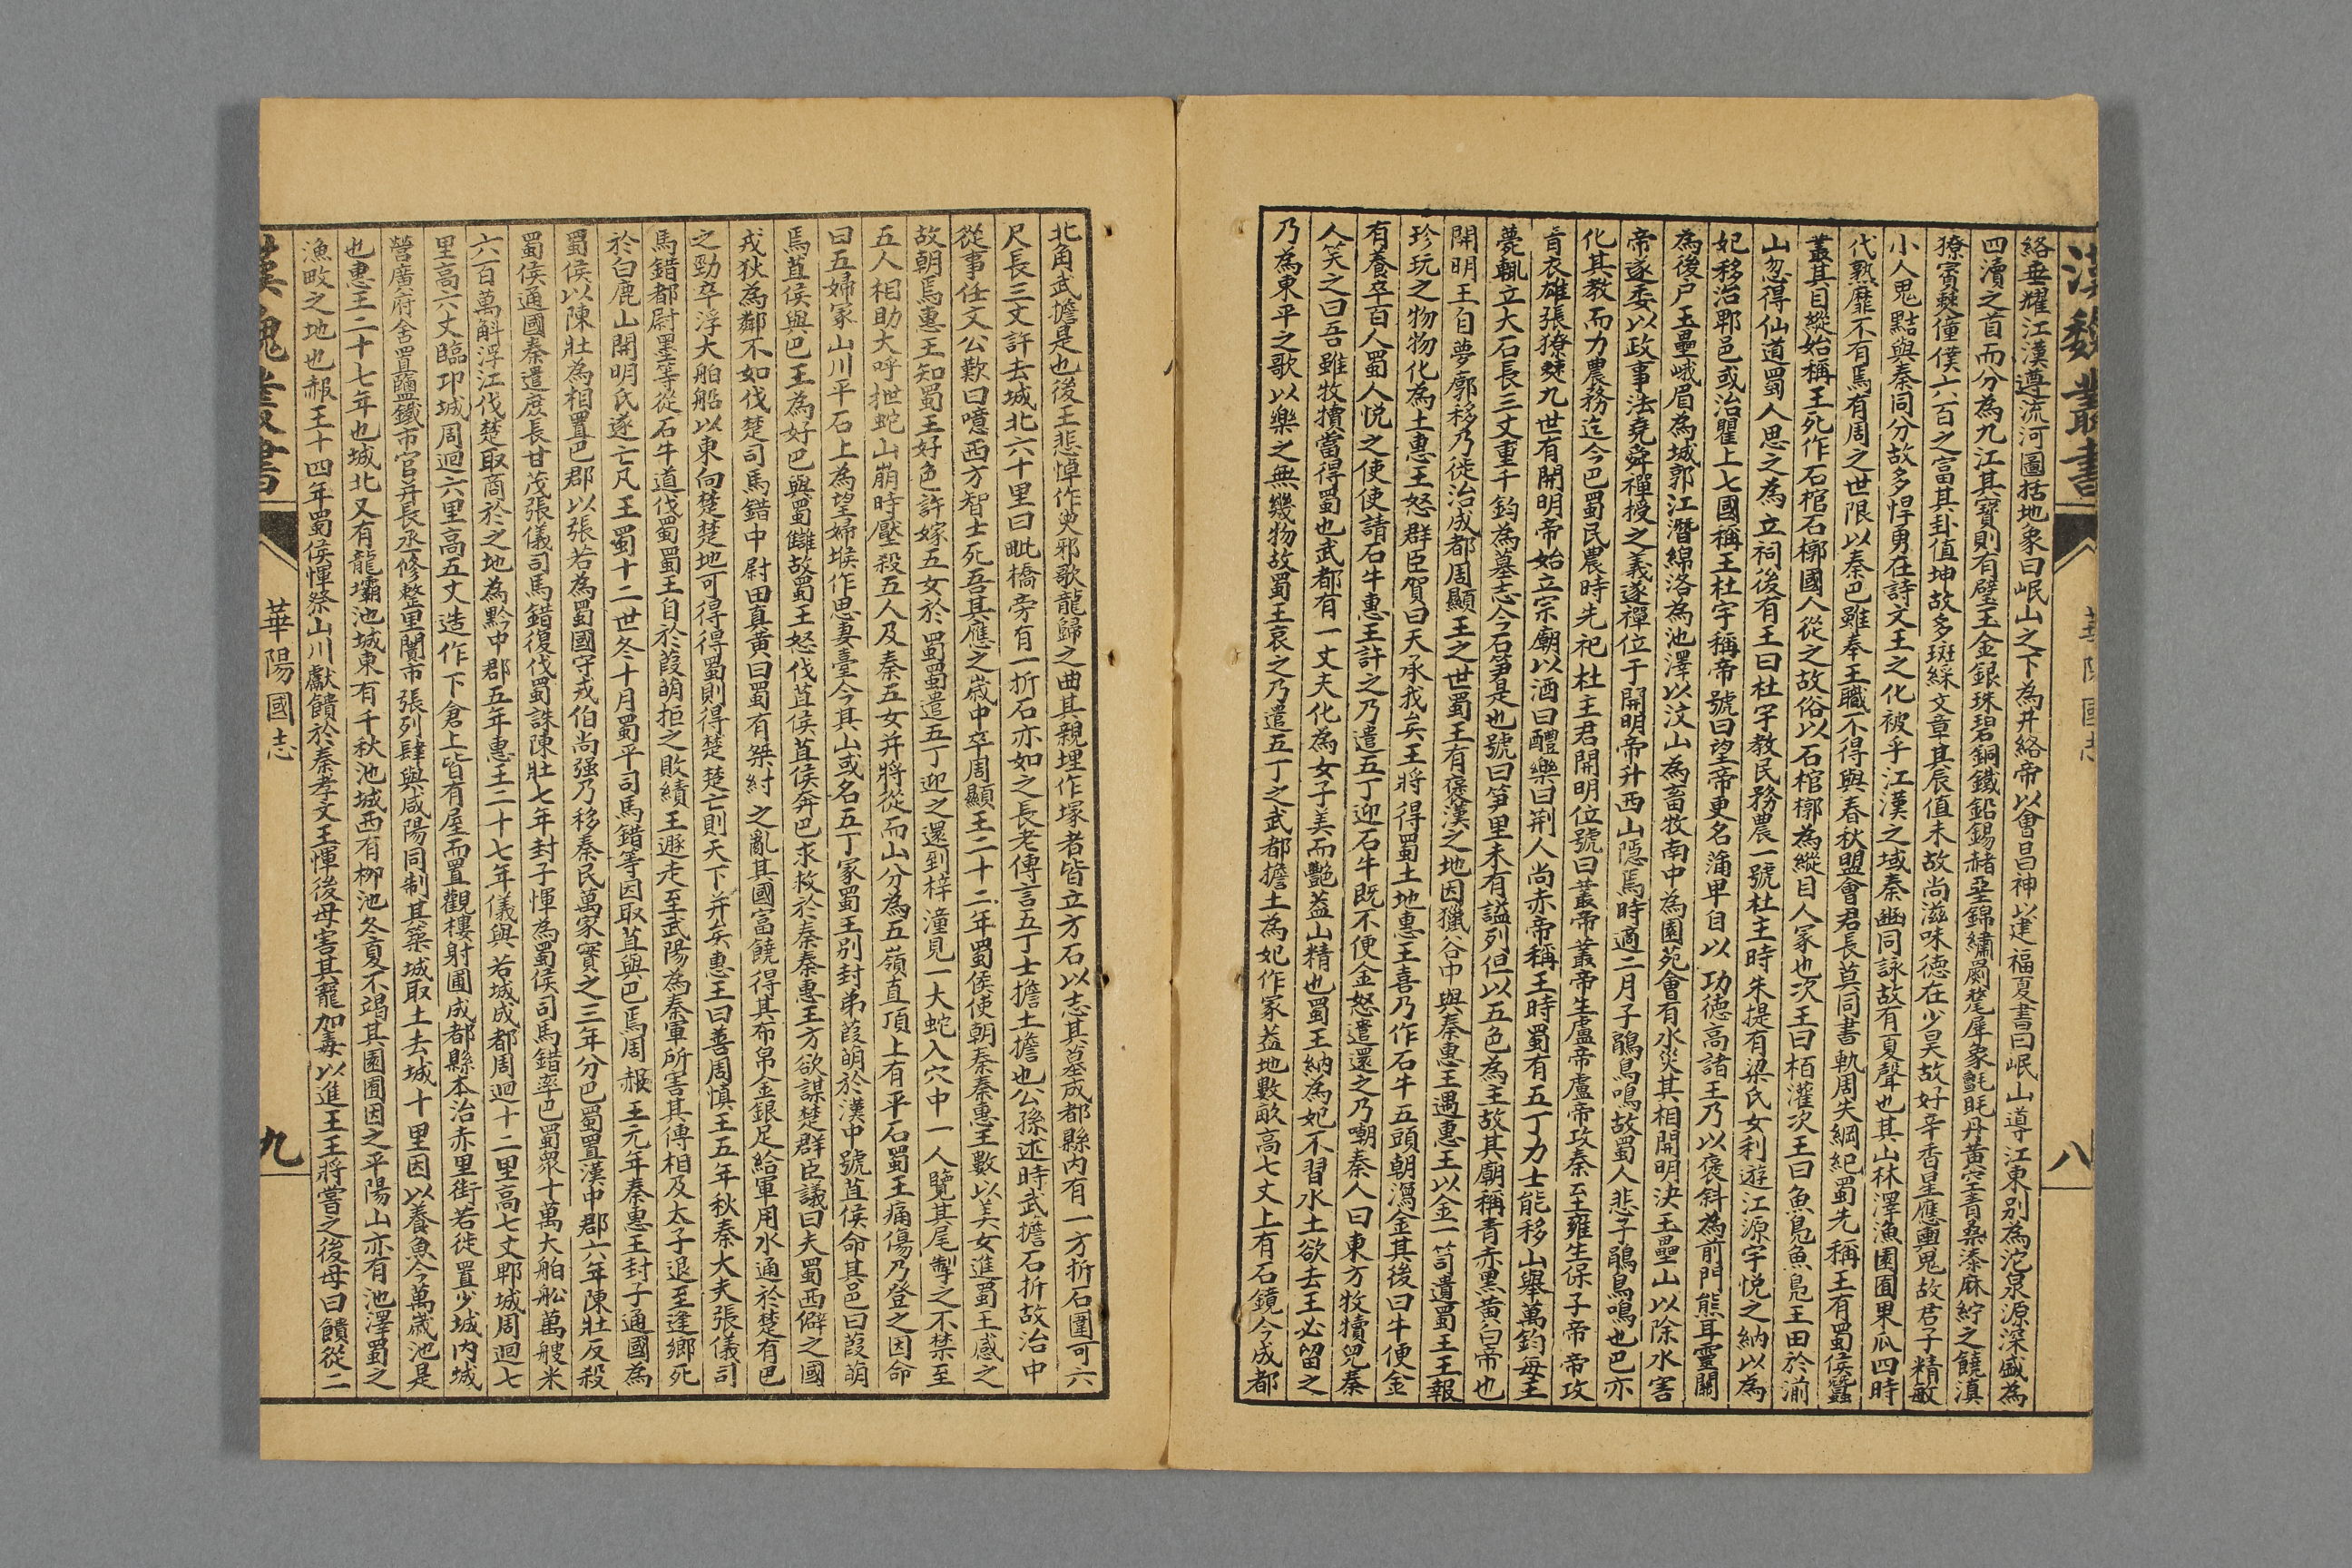 漢魏叢書
華陽國志
八
絡垂耀江漢遵流河圖括地象曰岷山之下為井絡帝以會昌神以建福夏書曰岷山導江東別為沱泉源深盛為
四瀆之首而分為九江其寶則有璧玉金銀珠碧銅鐵鉛錫赭堊錦繡罽氂犀象氈毦丹黃空青桑漆麻紵之饒滇
獠賨僰僮僕六百之富其卦值坤故多斑綵文章其辰值未故尚滋味德在少昊故好辛香星應輿鬼故君子精敏
小人鬼黠與秦同分故多悍勇在詩文王之化被乎江漢之域秦豳同詠故有夏聲也其山林澤漁園囿果瓜四時
代熟靡不有焉有周之世限以秦巴雖奉王職不得與春秋盟會君長莫同書軌周失綱紀蜀先稱王有蜀侯蠶
叢其目縱始稱王死作石棺石槨國人從之故俗以石棺槨為縱目人冢也次王曰柏灌次王曰魚鳧魚鳧王田於湔
山忽得仙道蜀人思之為立祠後有王曰杜宇教民務農一號杜主時朱提有梁氏女利遊江源宇悅之納以為
妃移治郫邑或治瞿上七國稱王杜宇稱帝號曰望帝更名蒲卑自以功德高諸王乃以褒斜為前門熊耳靈關
為後户玉壘峨眉為城郭江潛綿洛為池澤以汶山為畜牧南中為園苑會有水災其相開明決玉壘山以除水害
帝遂委以政事法堯舜禪授之義遂禪位于開明帝升西山隱焉時適二月子鵑鳥鳴故蜀人悲子鵑鳥鳴也巴亦
化其教而力農務迄今巴蜀民農時先祀杜主君開明位號曰叢帝叢帝生盧帝盧帝攻秦至雍生保子帝帝攻
青衣雄張獠僰九世有開明帝始立宗廟以酒曰醴樂曰荆人尚赤帝稱王時蜀有五丁力士能移山舉萬鈞每王
薨輒立大石長三丈重千鈞為墓志今石笋是也號曰笋里未有諡列但以五色為主故其廟稱青赤黑黃白帝也
開明王自夢廓移乃徙治成都周顯王之世蜀王有褒漢之地因獵谷中與秦惠王遇惠王以金一笥遺蜀王王報
珍玩之物物化為土惠王怒群臣賀曰天承我矣王將得蜀土地惠王喜乃作石牛五頭朝瀉金其後曰牛便金
有養卒百人蜀人悅之使使請石牛惠王許之乃遣五丁迎石牛既不便金怒遣還之乃嘲秦人曰東方牧犢兒秦
人笑之曰吾雖牧犢當得蜀也武都有一丈夫化為女子美而艷蓋山精也蜀王納為妃不習水土欲去王必留之
乃為東平之歌以樂之無幾物故蜀王哀之乃遣五丁之武都擔土為妃作冢蓋地數畝高七丈上有石鏡今成都
北角武擔是也後王悲悼作臾邪歌龍歸之曲其親埋作塚者皆立方石以志其墓成都縣內有一方折石圍可六
尺長三丈許去城北六十里曰毗橋旁有一折石亦如之長老傳言五丁士擔土擔也公孫述時武擔石折故治中
從事任文公歎曰噫西方智士死吾其應之歲中卒周顯王二十二年蜀侯使朝秦秦惠王數以美女進蜀王感之
故朝焉惠王知蜀王好色許嫁五女於蜀蜀遣五丁迎之還到梓潼見一大蛇入穴中一人覽其尾掣之不禁至
五人相助大呼抴蛇山崩時壓殺五人及秦五女并將從而山分為五嶺直頂上有平石蜀王痛傷乃登之因命
曰五婦冢山川平石上為望婦堠作思妻臺今其山或名五丁冢蜀王別封弟葭萌於漢中號苴侯命其邑曰葭萌
焉苴侯與巴王為好巴與蜀讎故蜀王怒伐苴侯苴侯奔巴求救於秦秦惠王方欲謀楚群臣議曰夫蜀西僻之國
戎狄為鄰不如伐楚司馬錯中尉田真黃曰蜀有桀紂之亂其國富饒得其布帛金銀足給軍用水通於楚有巴
之勁卒浮大舶船以東向楚楚地可得得蜀則得楚楚亡則天下并矣惠王曰善周慎王五年秋秦大夫張儀司
馬錯都尉墨等從石牛道伐蜀蜀王自於葭萌拒之敗績王遯走至武陽為秦軍所害其傅相及太子退至逢鄉死
於白鹿山開明氏遂亡凡王蜀十二世冬十月蜀平司馬錯等因取苴與巴焉周赧王元年秦惠王封子通國為
蜀侯以陳壯為相置巴郡以張若為蜀國守戎伯尚强乃移秦民萬家實之三年分巴蜀置漢中郡六年陳壯反殺
蜀侯通國秦遣庶長甘茂張儀司馬錯復伐蜀誅陳壯七年封子惲為蜀侯司馬錯率巴蜀眾十萬大舶舩萬艘米
六百萬斛浮江伐楚取商於之地為黔中郡五年惠王二十七年儀與若城成都周迴十二里高七丈郫城周迴七
里高六丈臨卭城周迴六里高五丈造作下倉上皆有屋而置觀樓射圃成都縣本治赤里街若徙置少城內城
營廣府舍置鹽鐵市官并長丞修整里闠市張列肆與咸陽同制其築城取土去城十里因以養魚今萬歲池是
也惠王二十七年也城北又有龍壩池城東有千秋池城西有柳池冬夏不竭其園囿因之平陽山亦有池澤蜀之
漁畋之地也赧王十四年蜀侯惲祭山川獻饋於秦孝文王惲後母害其寵加毒以進王王將嘗之後母曰饋從二
漢魏叢書
華陽國志
九